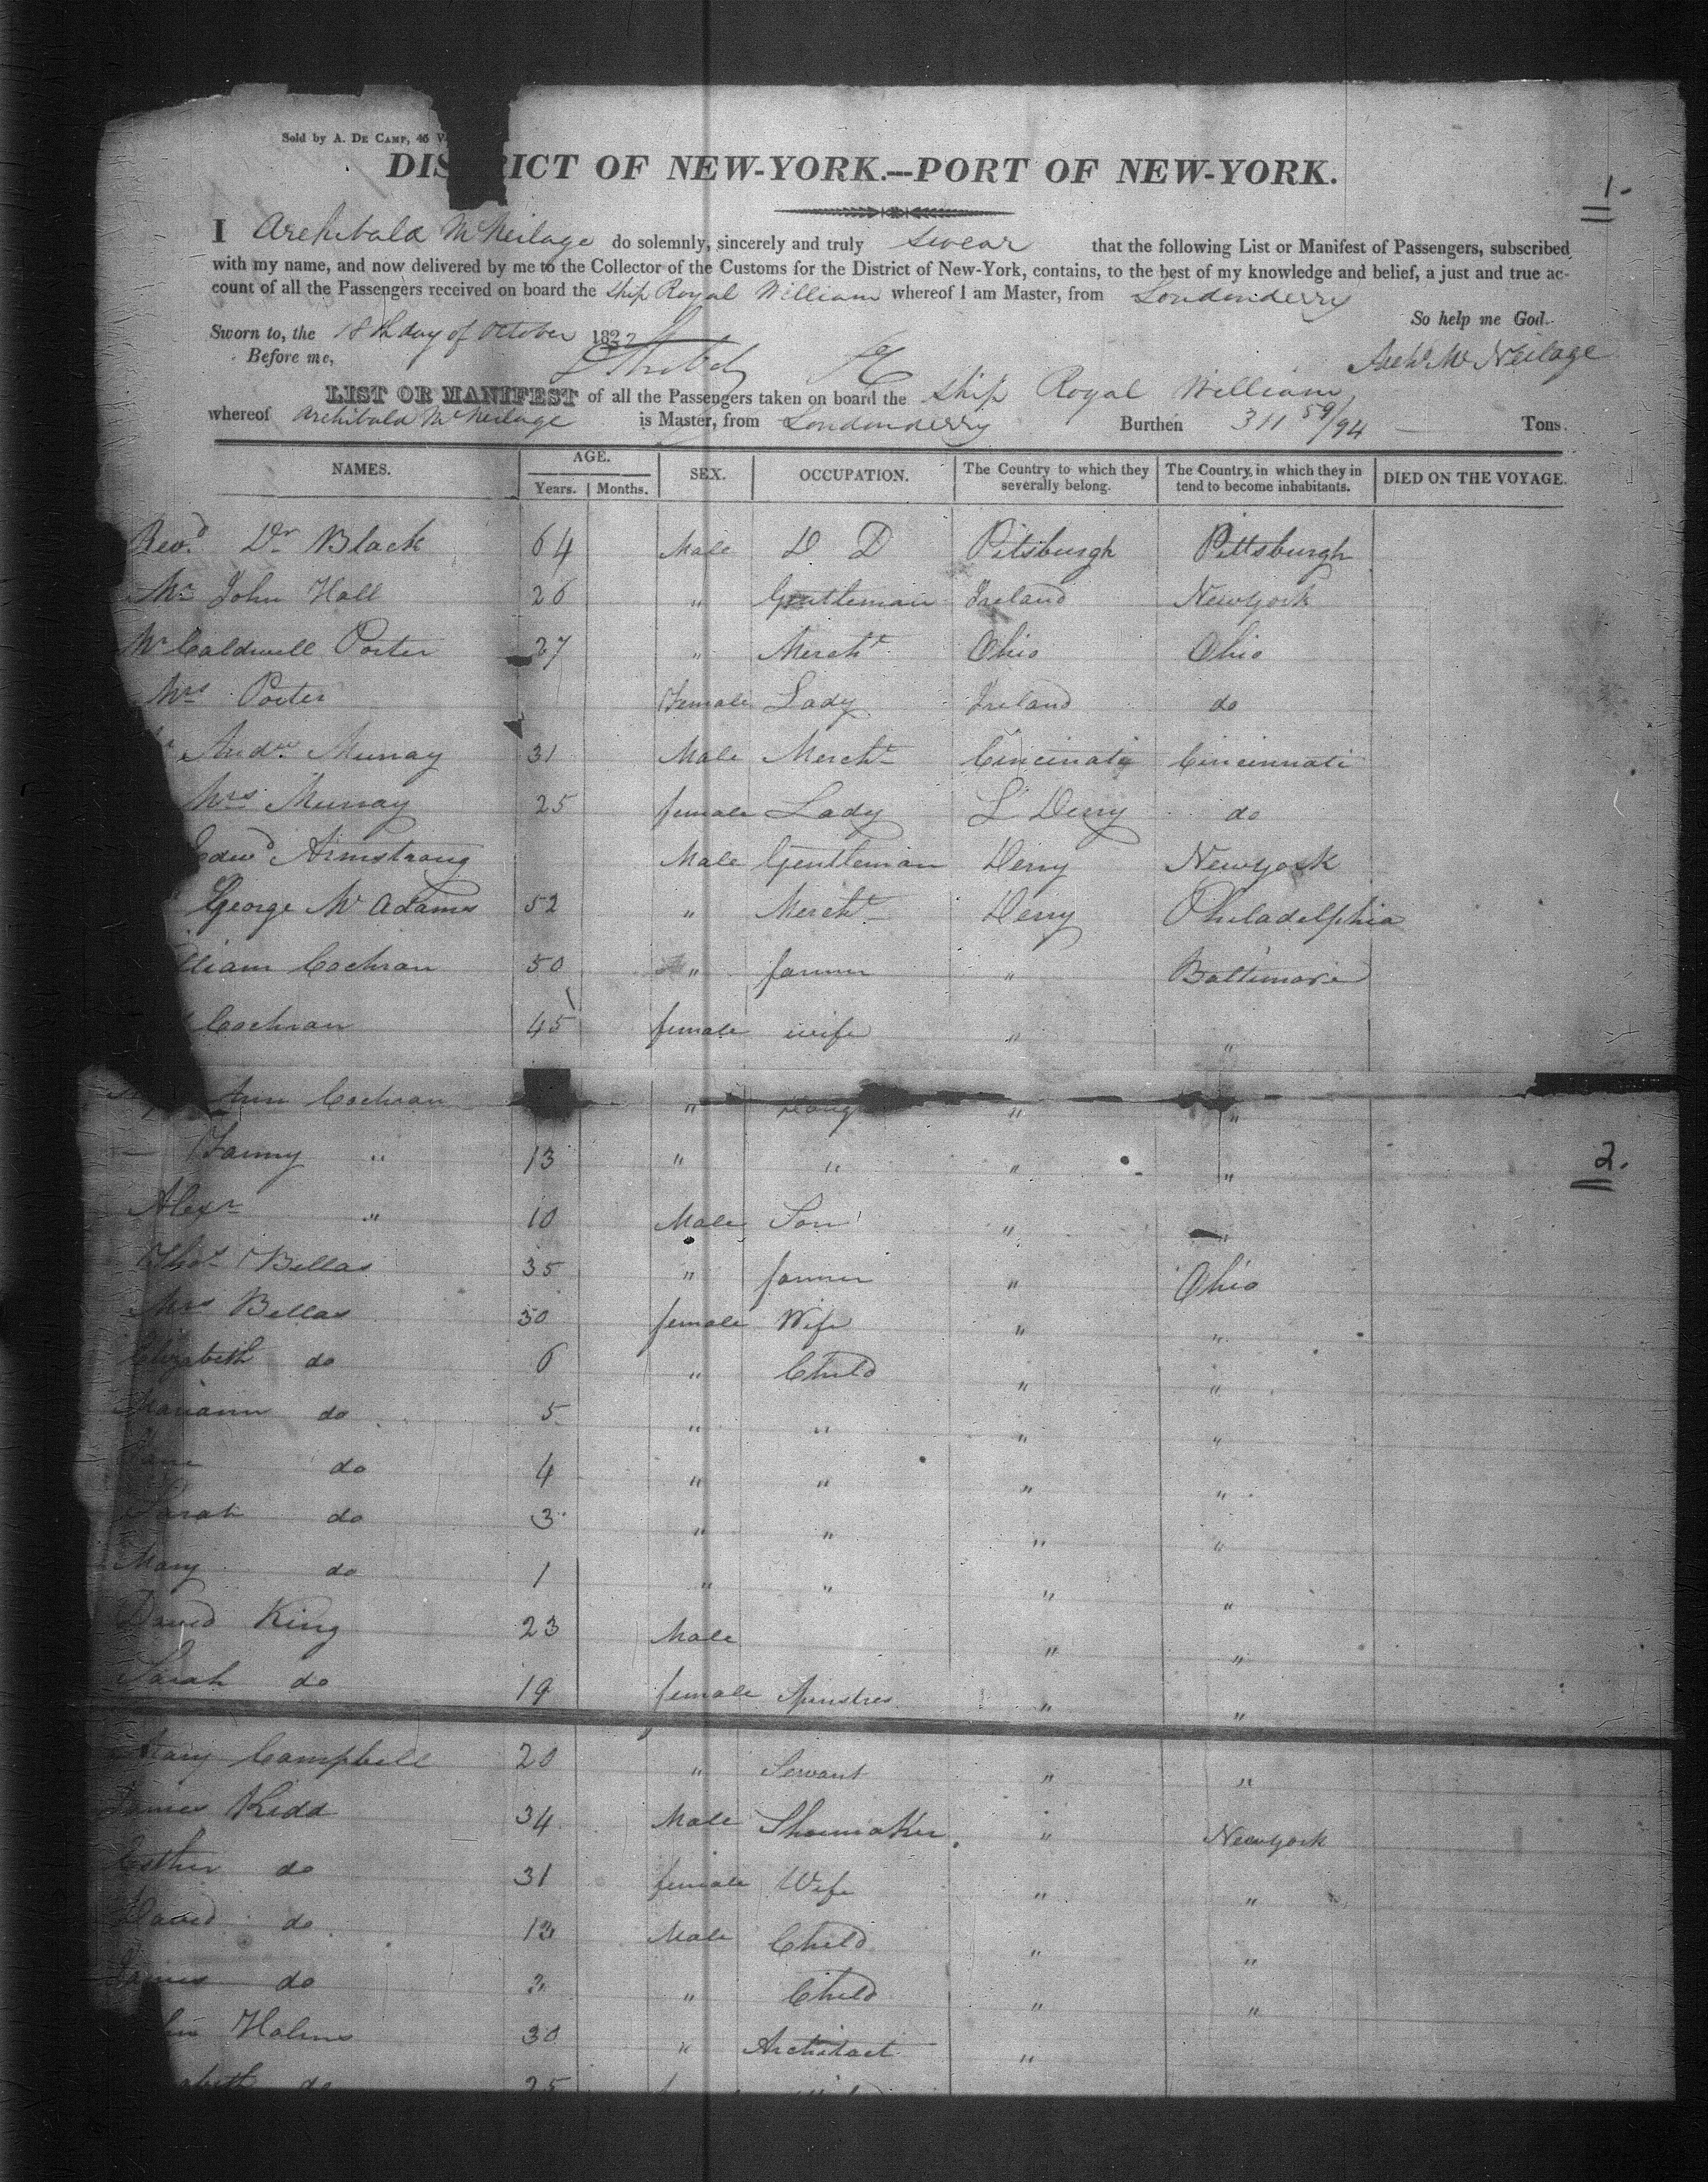 Sold by A. DE CAMP, 45 V
DIS RICT OF NEW-YORK.--PORT OF NEW-YORK.
1-
I Archibald McNeilage do solemnly, sincerely and truly swear that the following List or Manifest of Passengers, subscribed
with my name, and now delivered by me to the Collector of the Customs for the District of New-York, contains, to the best of my knowledge and belief, a just and true ac-
count of all the Passengers received on board the Ship Royal William whereof I am Master, from Londonderry
So help me God.
Sworn to, the 18th day of October 182
Before me,
Archd McNeilage
LIST OR MANIFEST of all the Passengers taken on board the Ship Royal William
whereof Archibald McNeilage is Master, from Londonderry Burthen 311 59/94 Tons.
NAMES. AGE. Years. Months. SEX. OCCUPATION. The Country to which they severally belong. The Country, in which they in tend to become inhabitants. DIED ON THE VOYAGE.
Revd Dr Black 64 Male D D Pitsburgh Pittsburgh
Mr John Hall 26 " Gentleman Ireland Newyork
Mr Caldwell Porter 27 " Mercht Ohio Ohio
Mrs Porter Female Lady Ireland do
Andw Murray 31 Male Mercht Cincinati Cincinnati
Mrs Murray 25 female Lady L Derry do
Edwd Armstrong Male Gentleman Derry Newyork
George McAdams 52 " Mercht Derry Philadelphia
lliam Cochran 50 " farmer " Baltimore
Cochran 45 female wife " "
Ann Cochran " Daug " "
— Fanny " 13 " " " "
2.
Alexr " 10 Male Son " "
Thos Bellas 35 " farmer " Ohio
Mrs Bellas 30 female Wife " "
Elizabeth do 6 " Child " "
Mariann do 5 " " " "
Jane do 4 " " " "
Sarah do 3 " " " "
Mary do 1 " " " "
David King 23 Male " "
Sarah do 19 female Spinstres " "
Mary Campbell 20 " Servant " "
James Kidd 34 Male Shoemaker " Newyork
Esther do 31 female Wife " "
David do 13 Male Child " "
James do 2 " Child " "
hn Holms 30 " Architect "
abeth do 25